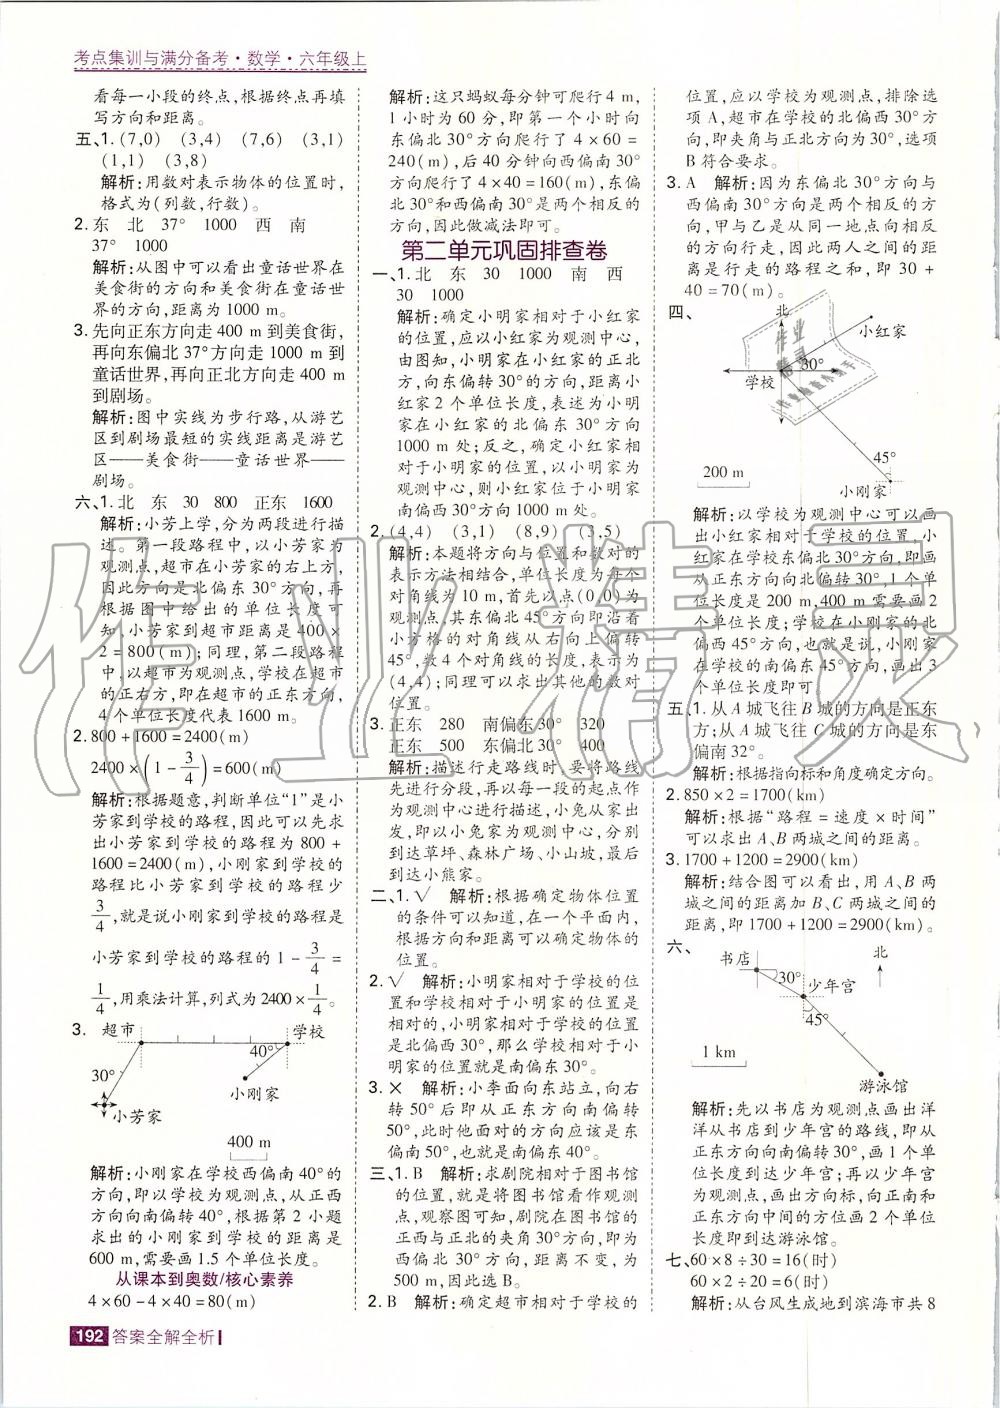 考点集训与满分备考·数学·六年级上
看每一小段的终点,根据终点再填
写方向和距离。
五、1.(7,0) (3,4) (7,6) (3,1)
(1,1) (3,8)
解析:用数对表示物体的位置时,
格式为(列数,行数)。
2.东 北 37° 1000 西 南
37° 1000
解析:从图中可以看出童话世界在
美食街的方向和美食街在童话世
界的方向,距离为1000 m。
3.先向正东方向走400 m到美食街,
再向东偏北37°方向走1000 m到
童话世界,再向正北方向走400 m
到剧场。
解析:图中实线为步行路,从游艺
区到剧场最短的实线距离是游艺
区——美食街——童话世界——
剧场。
六、1.北 东 30 800 正东 1600
解析:小芳上学,分为两段进行描
述。第一段路程中,以小芳家为
观测点,超市在小芳家的右上方,
因此方向是北偏东30°方向,再
根据图中给出的单位长度可
知,小芳家到超市距离是400×
2=800(m);同理,第二段路程
中,以超市为观测点,学校在超市
的正右方,即在超市的正东方向,
4个单位长度代表1600 m。
2.800+1600=2400(m)
2400×(1-3/4)=600(m)
解析:根据题意,判断单位“1”是小
芳家到学校的路程,因此可以先求
出小芳家到学校的路程为800+
1600=2400(m),小刚家到学校的
路程比小芳家到学校的路程少
3/4,就是说小刚家到学校的路程是
小芳家到学校的路程的1-3/4=
1/4,用乘法计算,列式为2400×1/4。
3. 超市 学校
40°
30°
小刚家
小芳家
400 m
解析:小刚家在学校西偏南40°的
方向,即以学校为观测点,从正西
方向向南偏转40°,根据第2小题
求出的小刚家到学校的距离是
600 m,需要画1.5个单位长度。
从课本到奥数/核心素养
4×60-4×40=80(m)
解析:这只蚂蚁每分钟可爬行4 m,
1小时为60分,即第一个小时向
东偏北30°方向爬行了4×60=
240(m),后40分钟向西偏南30°
方向爬行了4×40=160(m),东偏
北30°和西偏南30°是两个相反的
方向,因此做减法即可。
第二单元巩固排查卷
一、1.北 东 30 1000 南 西
30 1000
解析:确定小明家相对于小红家
的位置,应以小红家为观测中心,
由图知,小明家在小红家的正北
方,向东偏转30°的方向,距离小
红家2个单位长度,表述为小明
家在小红家的北偏东30°方向
1000 m处;反之,确定小红家相
对于小明家的位置,以小明家为
观测中心,则小红家位于小明家
南偏西30°方向1000 m处。
2.(4,4) (3,1) (8,9) (3,5)
解析:本题将方向与位置和数对的
表示方法相结合,单位长度为每个
对角线为10 m,首先以点(0,0)为
观测点,其东偏北45°方向即沿着
小方格的对角线从右向上偏转
45°,数4个对角线的长度,表示为
(4,4);同理可以求出其他的数对
位置。
3.正东 280 南偏东30° 320
正东 500 东偏北30° 400
解析:描述行走路线时,要将路线
先进行分段,再以每一段的起点作
为观测中心进行描述,小兔从家出
发,即以小兔家为观测中心,分别
到达草坪、森林广场、小山坡,最后
到达小熊家。
二、1.√ 解析:根据确定物体位置
的条件可以知道,在一个平面内,
根据方向和距离可以确定物体的
位置。
2.√ 解析:小明家相对于学校的位
置和学校相对于小明家的位置是
相对的,小明家相对于学校的位置
是北偏西30°,那么学校相对于小
明家的位置就是南偏东30°。
3.× 解析:小李面向东站立,向右
转50°后即从正东方向南偏转
50°,此时他面对的方向应该是东
偏南50°,也就是南偏东40°。
三、1.B 解析:求剧院相对于图书馆
的位置,就是将图书馆看作观测
点,观察图可知,剧院在图书馆的
正西与正北的夹角30°方向,即为
西偏北30°方向,距离不变,为
500 m,因此选B。
2.B 解析:确定超市相对于学校的
位置,应以学校为观测点,排除选
项A,超市在学校的北偏西30°方
向,即夹角与正北方向为30°,选项
B符合要求。
3.A 解析:因为东偏北30°方向与
西偏南30°方向是两个相反的方
向,甲与乙是从同一地点向相反
的方向行走,因此两人之间的距
离是行走的路程之和,即30+
40=70(m)。
四、
北
小红家
30°
学校
45°
200 m
小刚家
解析:以学校为观测中心可以画
出小红家相对于学校的位置,小
红家在学校东偏北30°方向,即画
从正东方向向北偏转30°,1个单
位长度是200 m,400 m需要画2
个单位长度;学校在小刚家的北
偏西45°方向,也就是说,小刚家
在学校的南偏东45°方向,画出3
个单位长度即可
五、1.从A城飞往B城的方向是正东
方;从A城飞往C城的方向是东
偏南32°。
解析:根据指向标和角度确定方向。
2.850×2=1700(km)
解析:根据“路程=速度×时间”
可以求出A、B两城之间的距离。
3.1700+1200=2900(km)
解析:结合图可以看出,用A、B两
城之间的距离加B、C两城之间的
距离,即1700+1200=2900(km)。
六、
书店 北
30°
少年宫
45°
1 km
游泳馆
解析:先以书店为观测点画出洋
洋从书店到少年宫的路线,即从
正东方向向南偏转30°,画1个单
位长度到达少年宫;再以少年宫
为观测点,画出方向标,向正南和
正东方向中间的方位画2个单位
长度即到达游泳馆。
七、60×8÷30=16(时)
60×2÷20=6(时)
解析:从台风生成地到滨海市共8
192 答案全解全析
作业精灵